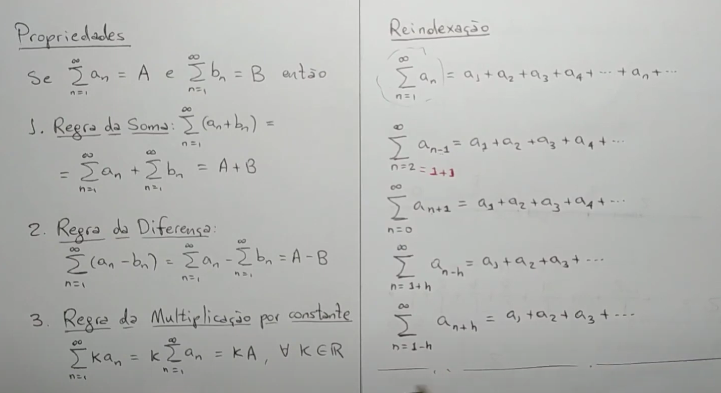 Propriedades
Se ∑_{n=1}^{∞} a_n = A e ∑_{n=1}^{∞} b_n = B então
1. Regra da Soma: ∑_{n=1}^{∞} (a_n + b_n) =
= ∑_{n=1}^{∞} a_n + ∑_{n=1}^{∞} b_n = A + B
2. Regra da Diferença:
∑_{n=1}^{∞} (a_n - b_n) = ∑_{n=1}^{∞} a_n - ∑_{n=1}^{∞} b_n = A - B
3. Regra da Multiplicação por constante
∑_{n=1}^{∞} K a_n = K ∑_{n=1}^{∞} a_n = K A, ∀ K ∈ ℝ
Reindexação
∑_{n=1}^{∞} a_n = a_1 + a_2 + a_3 + a_4 + ··· + a_n + ···
∑_{n=2=1+1}^{∞} a_{n-1} = a_1 + a_2 + a_3 + a_4 + ···
∑_{n=0}^{∞} a_{n+1} = a_1 + a_2 + a_3 + a_4 + ···
∑_{n=1+h}^{∞} a_{n-h} = a_1 + a_2 + a_3 + ···
∑_{n=1-h}^{∞} a_{n+h} = a_1 + a_2 + a_3 + ···